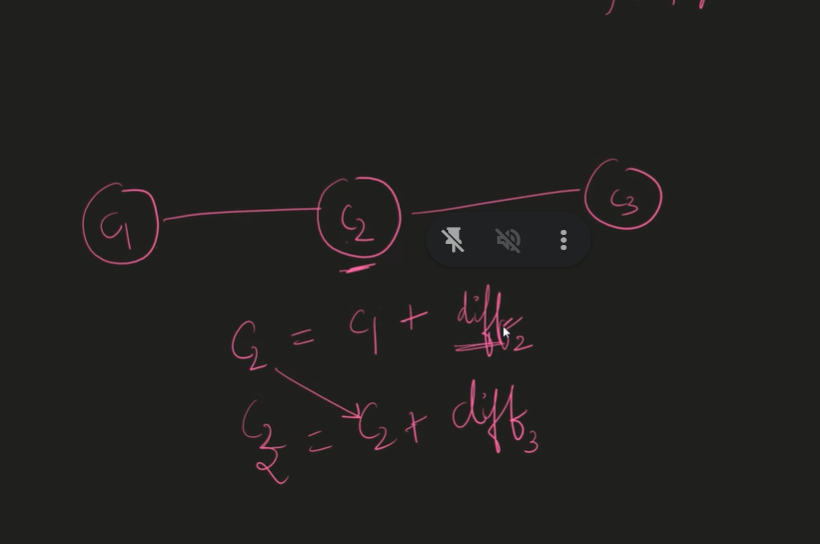 C1 C2 C3
C2 = C1 + diff2
C3 = C2 + diff3